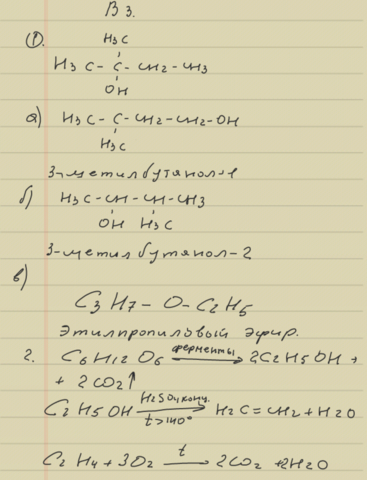 В 3.
①.
H₃C
H₃C - C - CH₂ - CH₃
OH
а) H₃C - C - CH₂ - CH₂ - OH
H₃C
3-метилбутанол-1
б) H₃C - CH - CH - CH₃
OH H₃C
3-метилбутанол-2
в)
C₃H₇ - O - C₂H₅
Этилпропиловый эфир.
2. C₆H₁₂O₆ ферменты → 2C₂H₅OH +
+ 2CO₂↑
C₂H₅OH H₂SO₄ конц. t>140° → H₂C=CH₂ + H₂O
C₂H₄ + 3O₂ t → 2CO₂ + 2H₂O